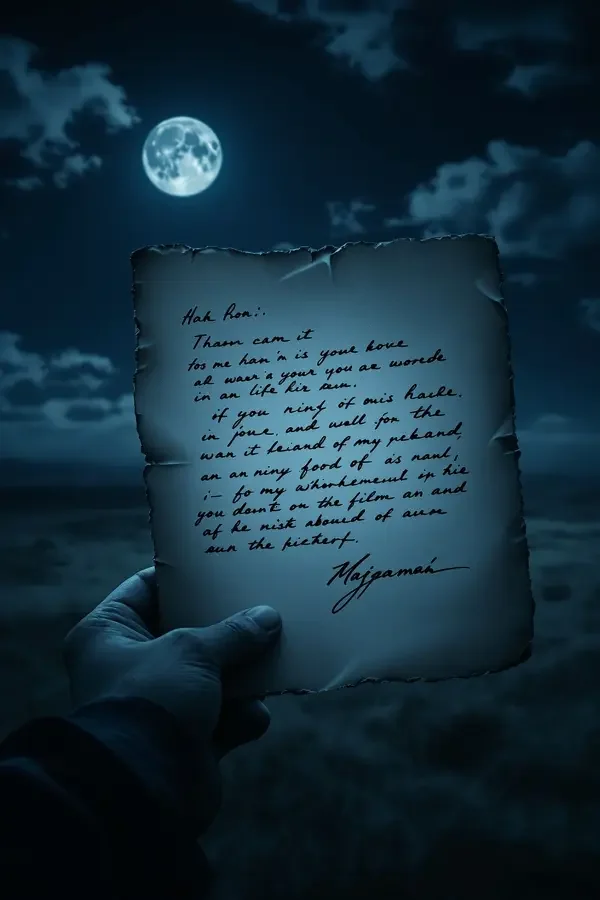 Hak Ron:.
Tharn cam it
tos me han'n is youe hove
al waer'a your you ae worede
in an life hir sun.
if you ninf of mis hacle.
in joue. and woll for the
wan it beiand of my peband,
an an niny food of as naut,
i– fo my
you darnt on the film an and
af he nist aboued of aurn
sun the
Majgamań